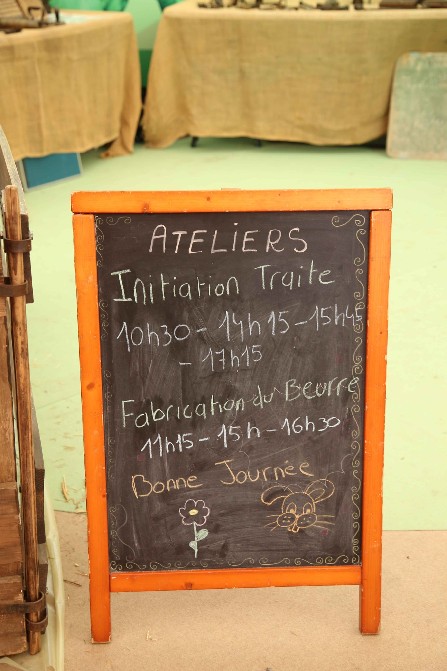 ATELIERS
Initiation Traite
10h30 - 14h15 - 15h45
- 17h15
Fabrication du Beurre
11h15 - 15h - 16h30
Bonne Journée